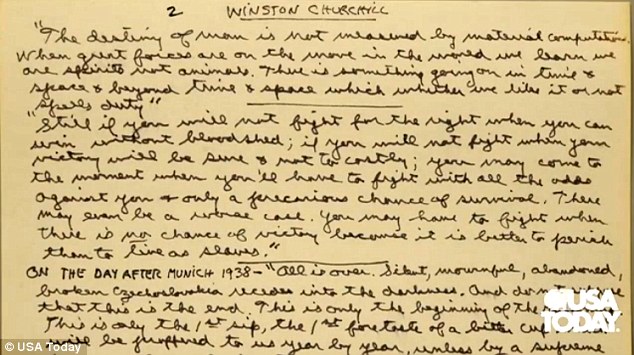 2 WINSTON CHURCHILL
"The destiny of man is not measured by material computation.
When great forces are on the move in the world we learn we
are spirits not animals. There is something going on in time &
space & beyond time & space which whether we like it or not
spells duty"
"Still if you will not fight for the right when you can
win without bloodshed; if you will not fight when your
victory will be sure & not to costly; you may come to
the moment when you'll have to fight with all the odds
against you & only a precarious chance of survival. There
may even be a worse case. You may have to fight when
there is no chance of victory because it is better to perish
than to live as slaves."
ON THE DAY AFTER MUNICH 1938 - "All is over. Silent, mournful, abandoned,
broken Czechoslovakia recedes into the darkness. And do not
that this is the end. This is only the beginning of the
This is only the 1st sip, the 1st foretaste of a bitter cup
will be proffered to us year by year, unless by a supreme
USA TODAY
© USA Today